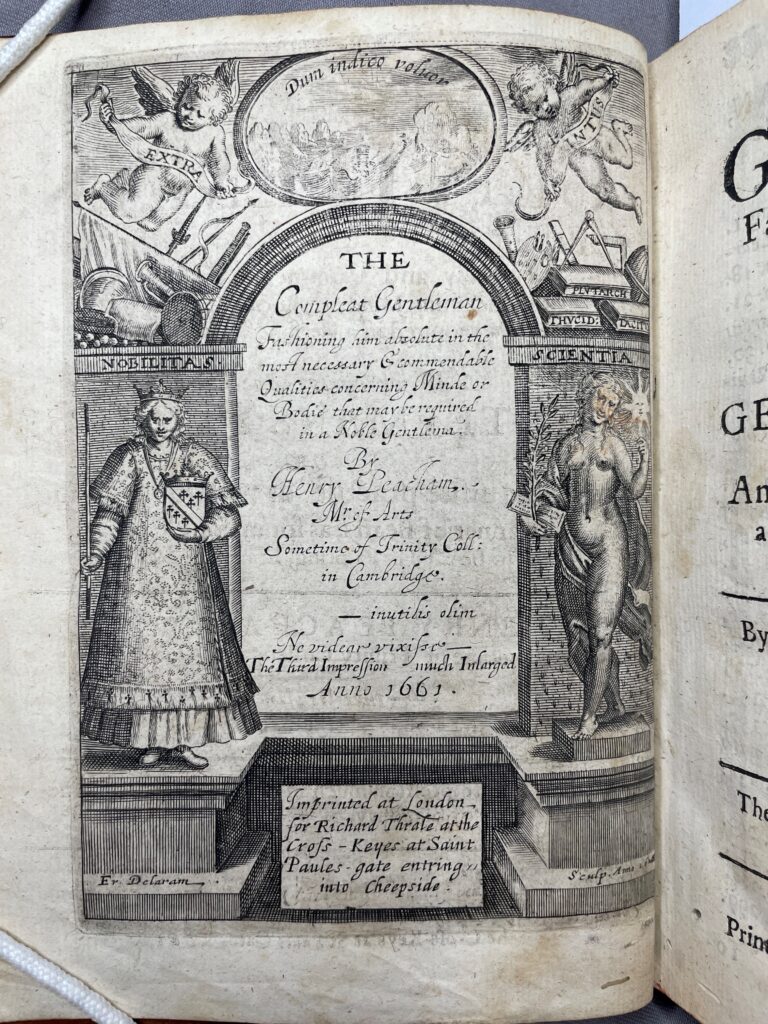 Dum indico volvor
EXTRA
INTUS
PLUTARCH
THVCID:
TACIT
NOBILITAS.
SCIENTIA
THE
Compleat Gentleman
Fashioning him absolute in the
most necessary & commendable
Qualities concerning Minde or
Bodie that may be required
in a Noble Gentlema.
By
Henry Peacham.
Mr. of Arts
Sometime of Trinity Coll:
in Cambridge.
— inutilis olim
Ne videar vixisse —
The Third Impression much Inlarged
Anno 1661.
Imprinted at London
for Richard Thrale at the
Cross-Keyes at Saint
Paules-gate entring
into Cheepside.
Fr. Delaram
Sculp. Anno
G
Fa
GE
An
a
By
The
Prin